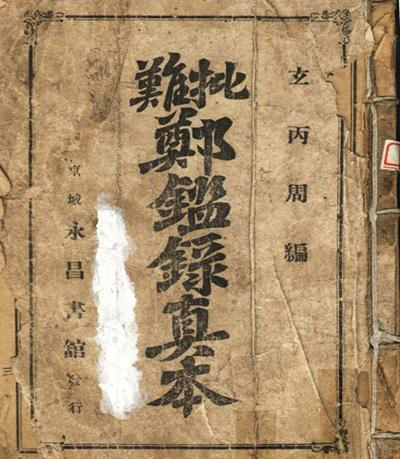 玄丙周編
批難
鄭鑑錄真本
京城永昌書館發行